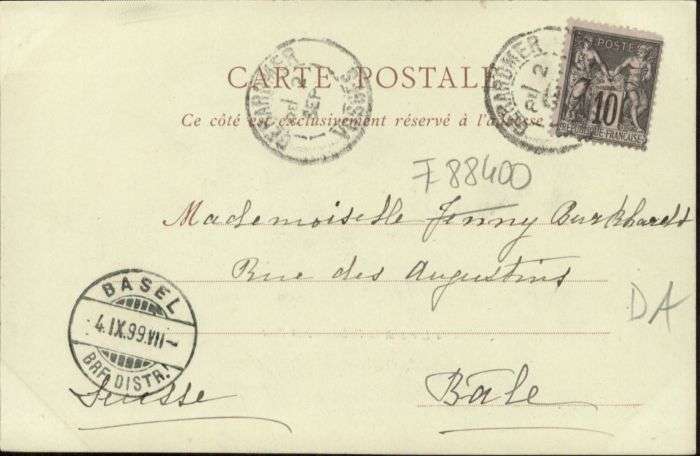 CARTE POSTALE
Ce côté est exclusivement réservé à l'adresse
GERARDMER
VOSGES
SEPT
GERARDMER
POSTE
10
REPUBLIQUE FRANÇAISE
F 88400
Mademoiselle Jenny Burkhardt
Rue des Augustins
DA
BASEL
4.IX.99.VII-
BRF. DISTR.!
Suisse
Bâle